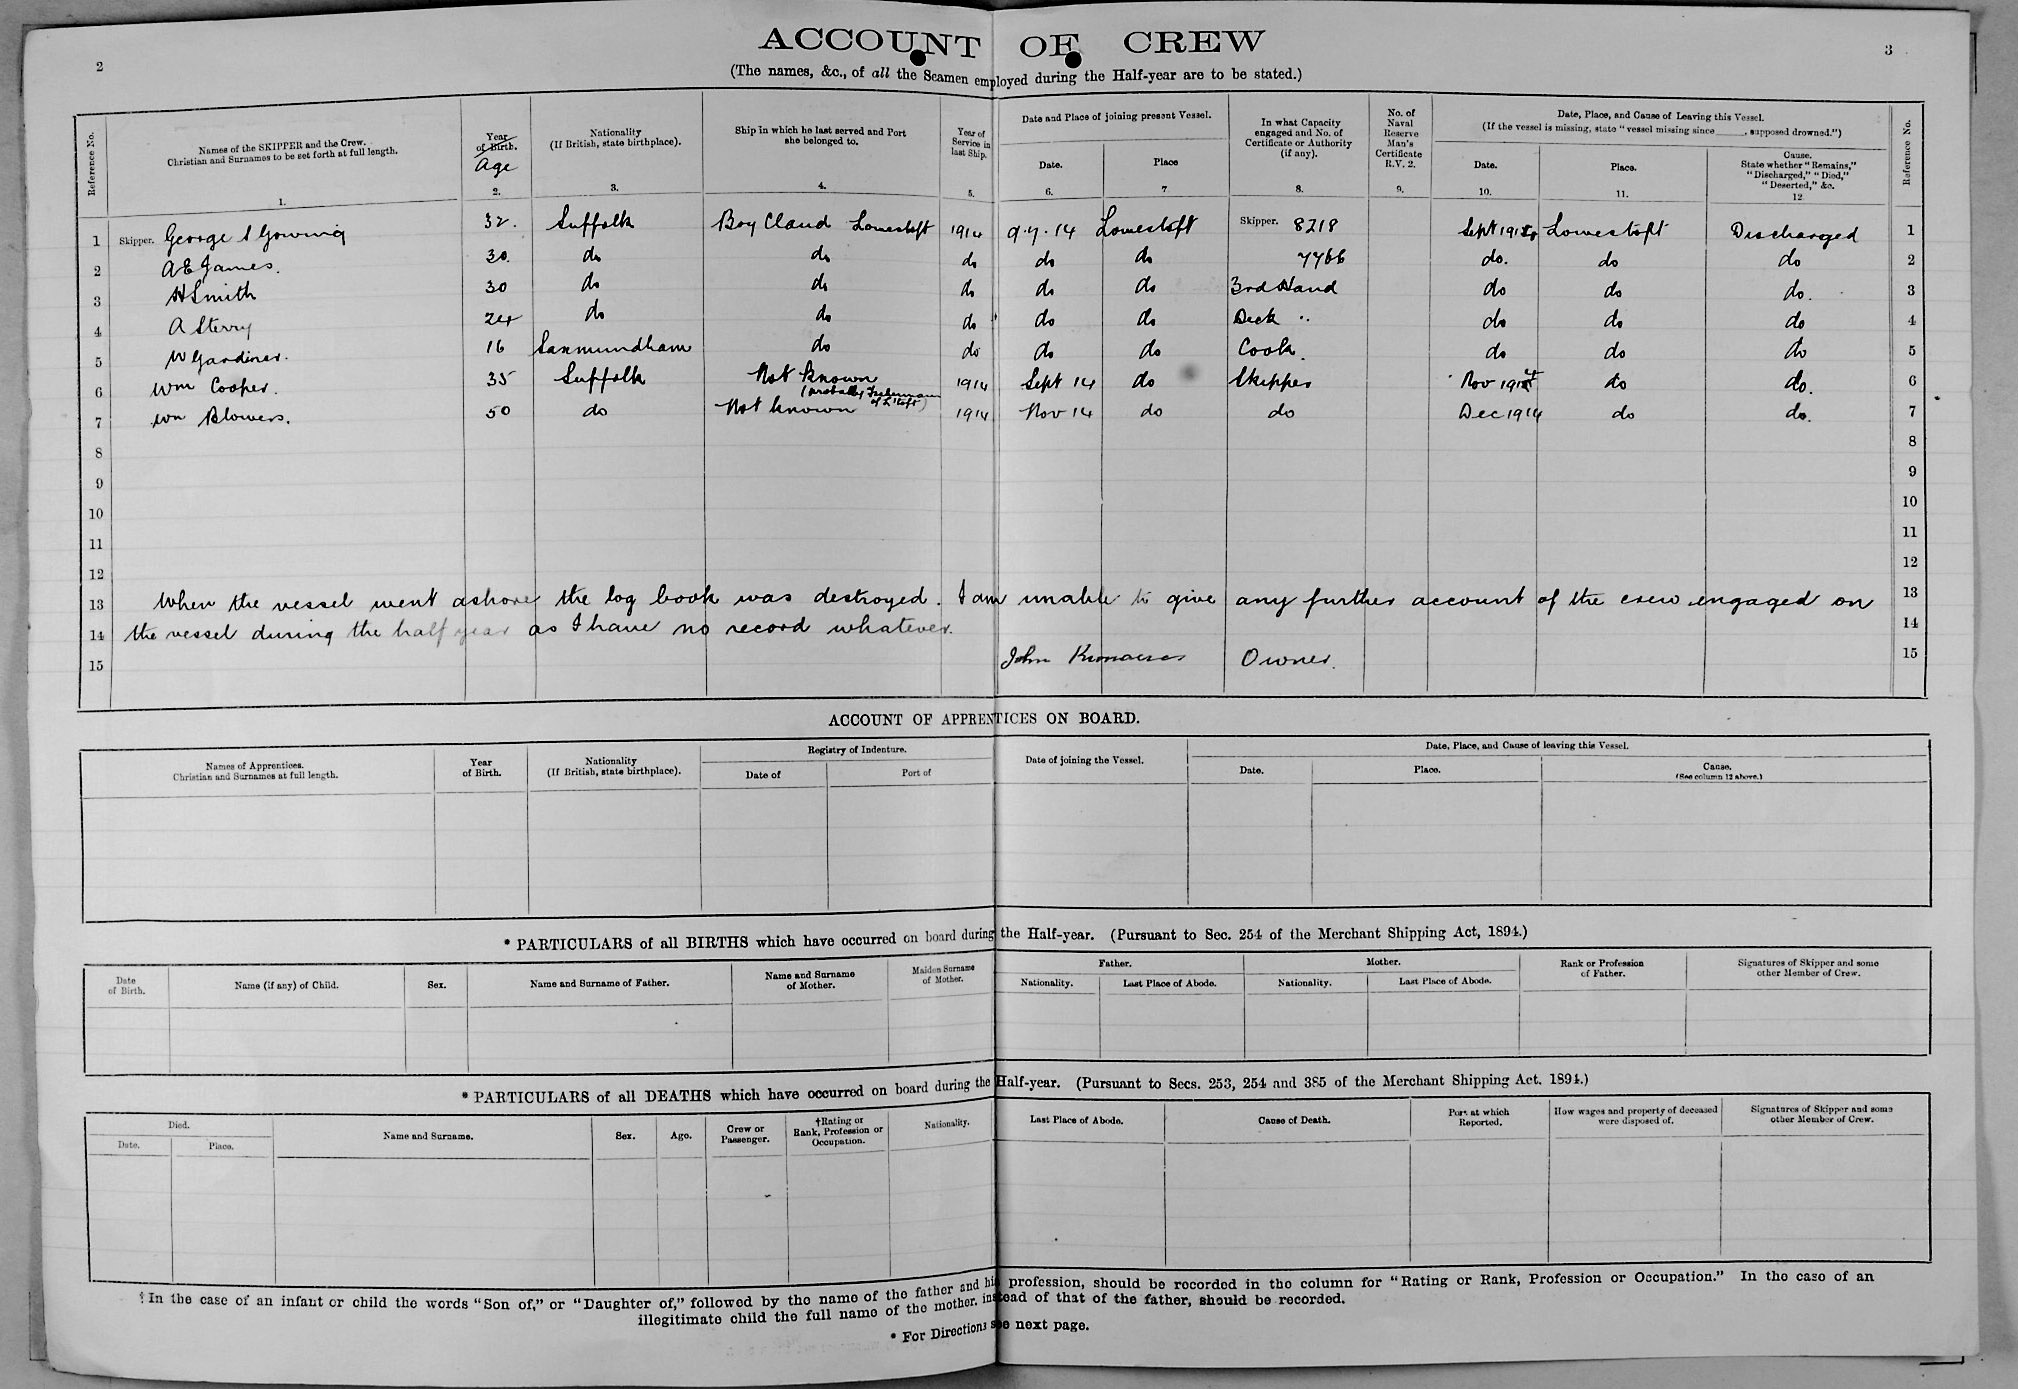 2
ACCOUNT OF CREW
3
(The names, &c., of all the Seamen employed during the Half-year are to be stated.)
Reference No.
Names of the SKIPPER and the Crew.
Christian and Surnames to be set forth at full length.
1.
Year
of Birth.
Age
2.
Nationality
(If British, state birthplace).
3.
Ship in which he last served and Port
she belonged to.
4.
Year of
Service in
last Ship.
5.
Date and Place of joining present Vessel.
Date.
6.
Place
7
In what Capacity
engaged and No. of
Certificate or Authority
(if any).
8.
No. of
Naval
Reserve
Man's
Certificate
R.V. 2.
9.
Date, Place, and Cause of Leaving this Vessel.
(If the vessel is missing, state "vessel missing since ____, supposed drowned.")
Date.
10.
Place.
11.
Cause.
State whether "Remains,"
"Discharged," "Died,"
"Deserted," &c.
12
Reference No.
1 Skipper. George S Gowing 32. Suffolk Boy Claud Lowestoft 1914 9.7.14 Lowestoft Skipper. 8218 Sept Lowestoft Discharged 1
2 A E James. 30. do do do do do 7766 do. do do 2
3 H Smith 30 do do do do do 3rd Hand do do do. 3
4 A Sterry 24 do do do do do Deck " do do do 4
5 W Gardiner. 16 Saxmundham do do do do Cook. do do do 5
6 Wm Cooper. 35 Suffolk Not known 1914 Sept 14 do Skipper Nov 1914 do do. 6
(probably Fisherman
of L'toft)
7 Wm Blowers. 50 do Not known 1914 Nov 14 do do Dec 1914 do do. 7
8 8
9 9
10 10
11 11
12 12
13 When the vessel went ashore the log book was destroyed. I am unable to give any further account of the crew engaged on 13
14 the vessel during the half year as I have no record whatever. 14
15 John Owner. 15
ACCOUNT OF APPRENTICES ON BOARD.
Names of Apprentices.
Christian and Surnames at full length.
Year
of Birth.
Nationality
(If British, state birthplace).
Registry of Indenture.
Date of
Port of
Date of joining the Vessel.
Date, Place, and Cause of leaving this Vessel.
Date.
Place.
Cause.
(See column 12 above.)
* PARTICULARS of all BIRTHS which have occurred on board during the Half-year. (Pursuant to Sec. 254 of the Merchant Shipping Act, 1894.)
Date
of Birth.
Name (if any) of Child.
Sex.
Name and Surname of Father.
Name and Surname
of Mother.
Maiden Surname
of Mother.
Father.
Nationality.
Last Place of Abode.
Mother.
Nationality.
Last Place of Abode.
Rank or Profession
of Father.
Signatures of Skipper and some
other Member of Crew.
* PARTICULARS of all DEATHS which have occurred on board during the Half-year. (Pursuant to Secs. 253, 254 and 385 of the Merchant Shipping Act. 1894.)
Died.
Date.
Place.
Name and Surname.
Sex.
Age.
Crew or
Passenger.
†Rating or
Rank, Profession or
Occupation.
Nationality.
Last Place of Abode.
Cause of Death.
Port at which
Reported.
How wages and property of deceased
were disposed of.
Signatures of Skipper and some
other Member of Crew.
†In the case of an infant or child the words "Son of," or "Daughter of," followed by the name of the father and his profession, should be recorded in the column for "Rating or Rank, Profession or Occupation." In the case of an
illegitimate child the full name of the mother, instead of that of the father, should be recorded.
* For Directions see next page.